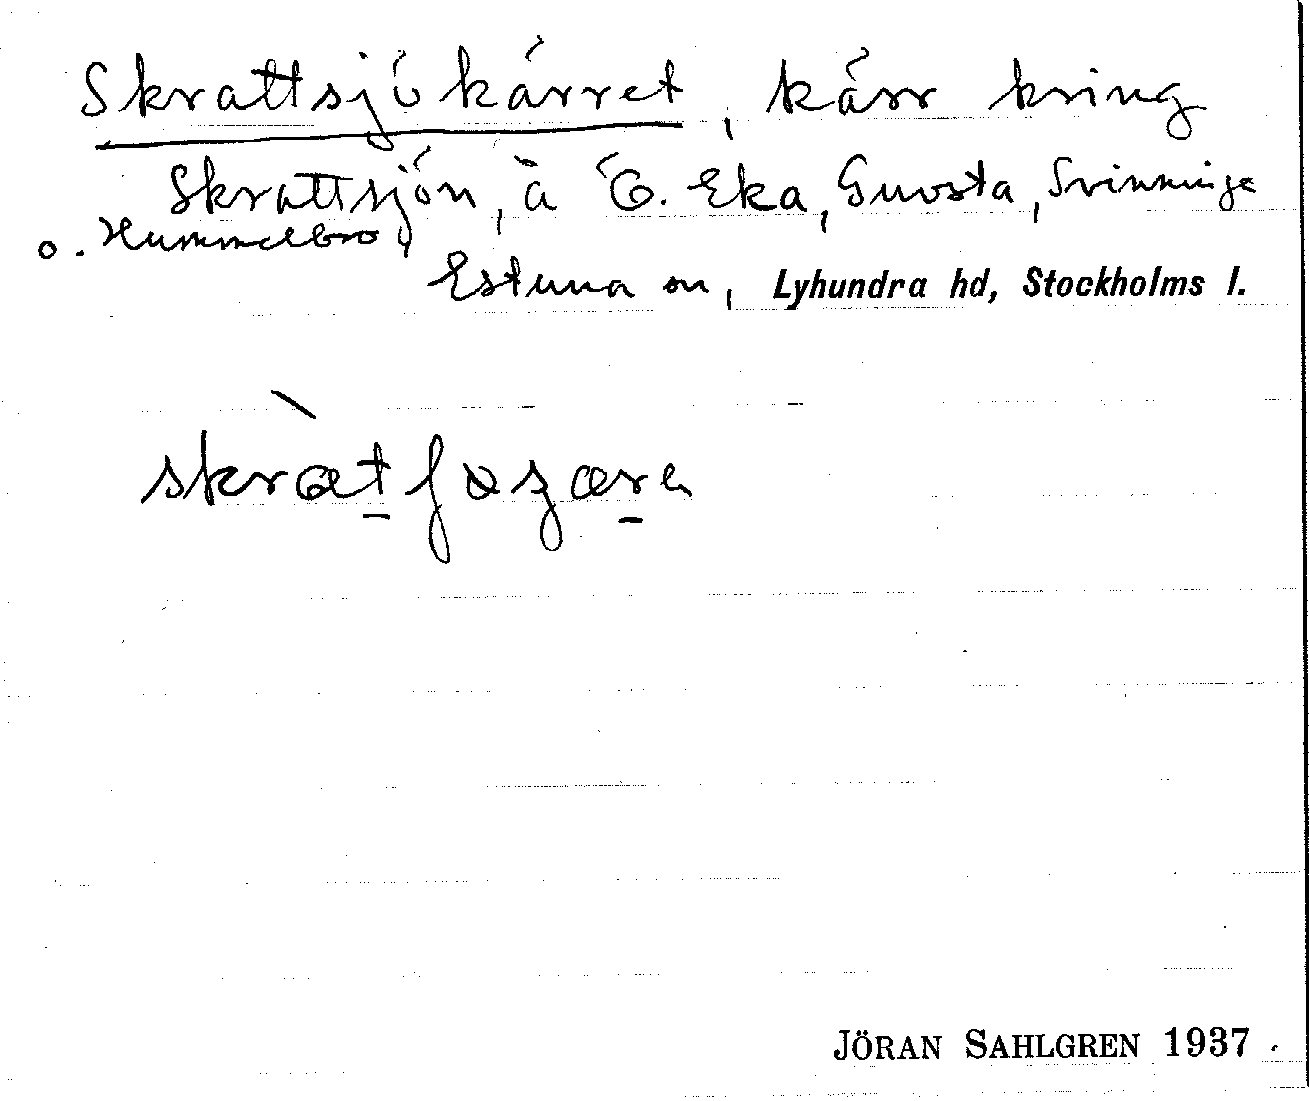 Skrattsjökärret, kärr kring
Skrattsjön, å Ö. Eka, Guvsta, Svinninge
o. Hummelbro,
Estuna sn, Lyhundra hd, Stockholms l.
JÖRAN SAHLGREN 1937.